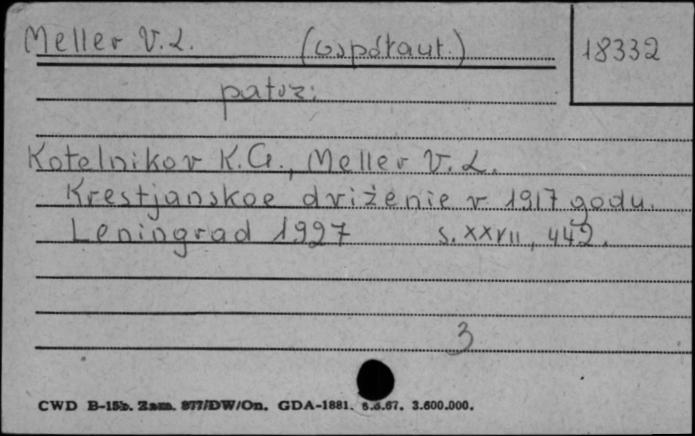 Meller V.L. (współaut.) 18332
patrz:
Kotelnikov K.G., Meller V.L.
Krestjanskoe dviženie v 1917 godu.
Leningrad 1927 s. XXVII, 442.
3
CWD B-15b. Zam. 877/DW/On. GDA-1881. 8.6.67. 3.600.000.